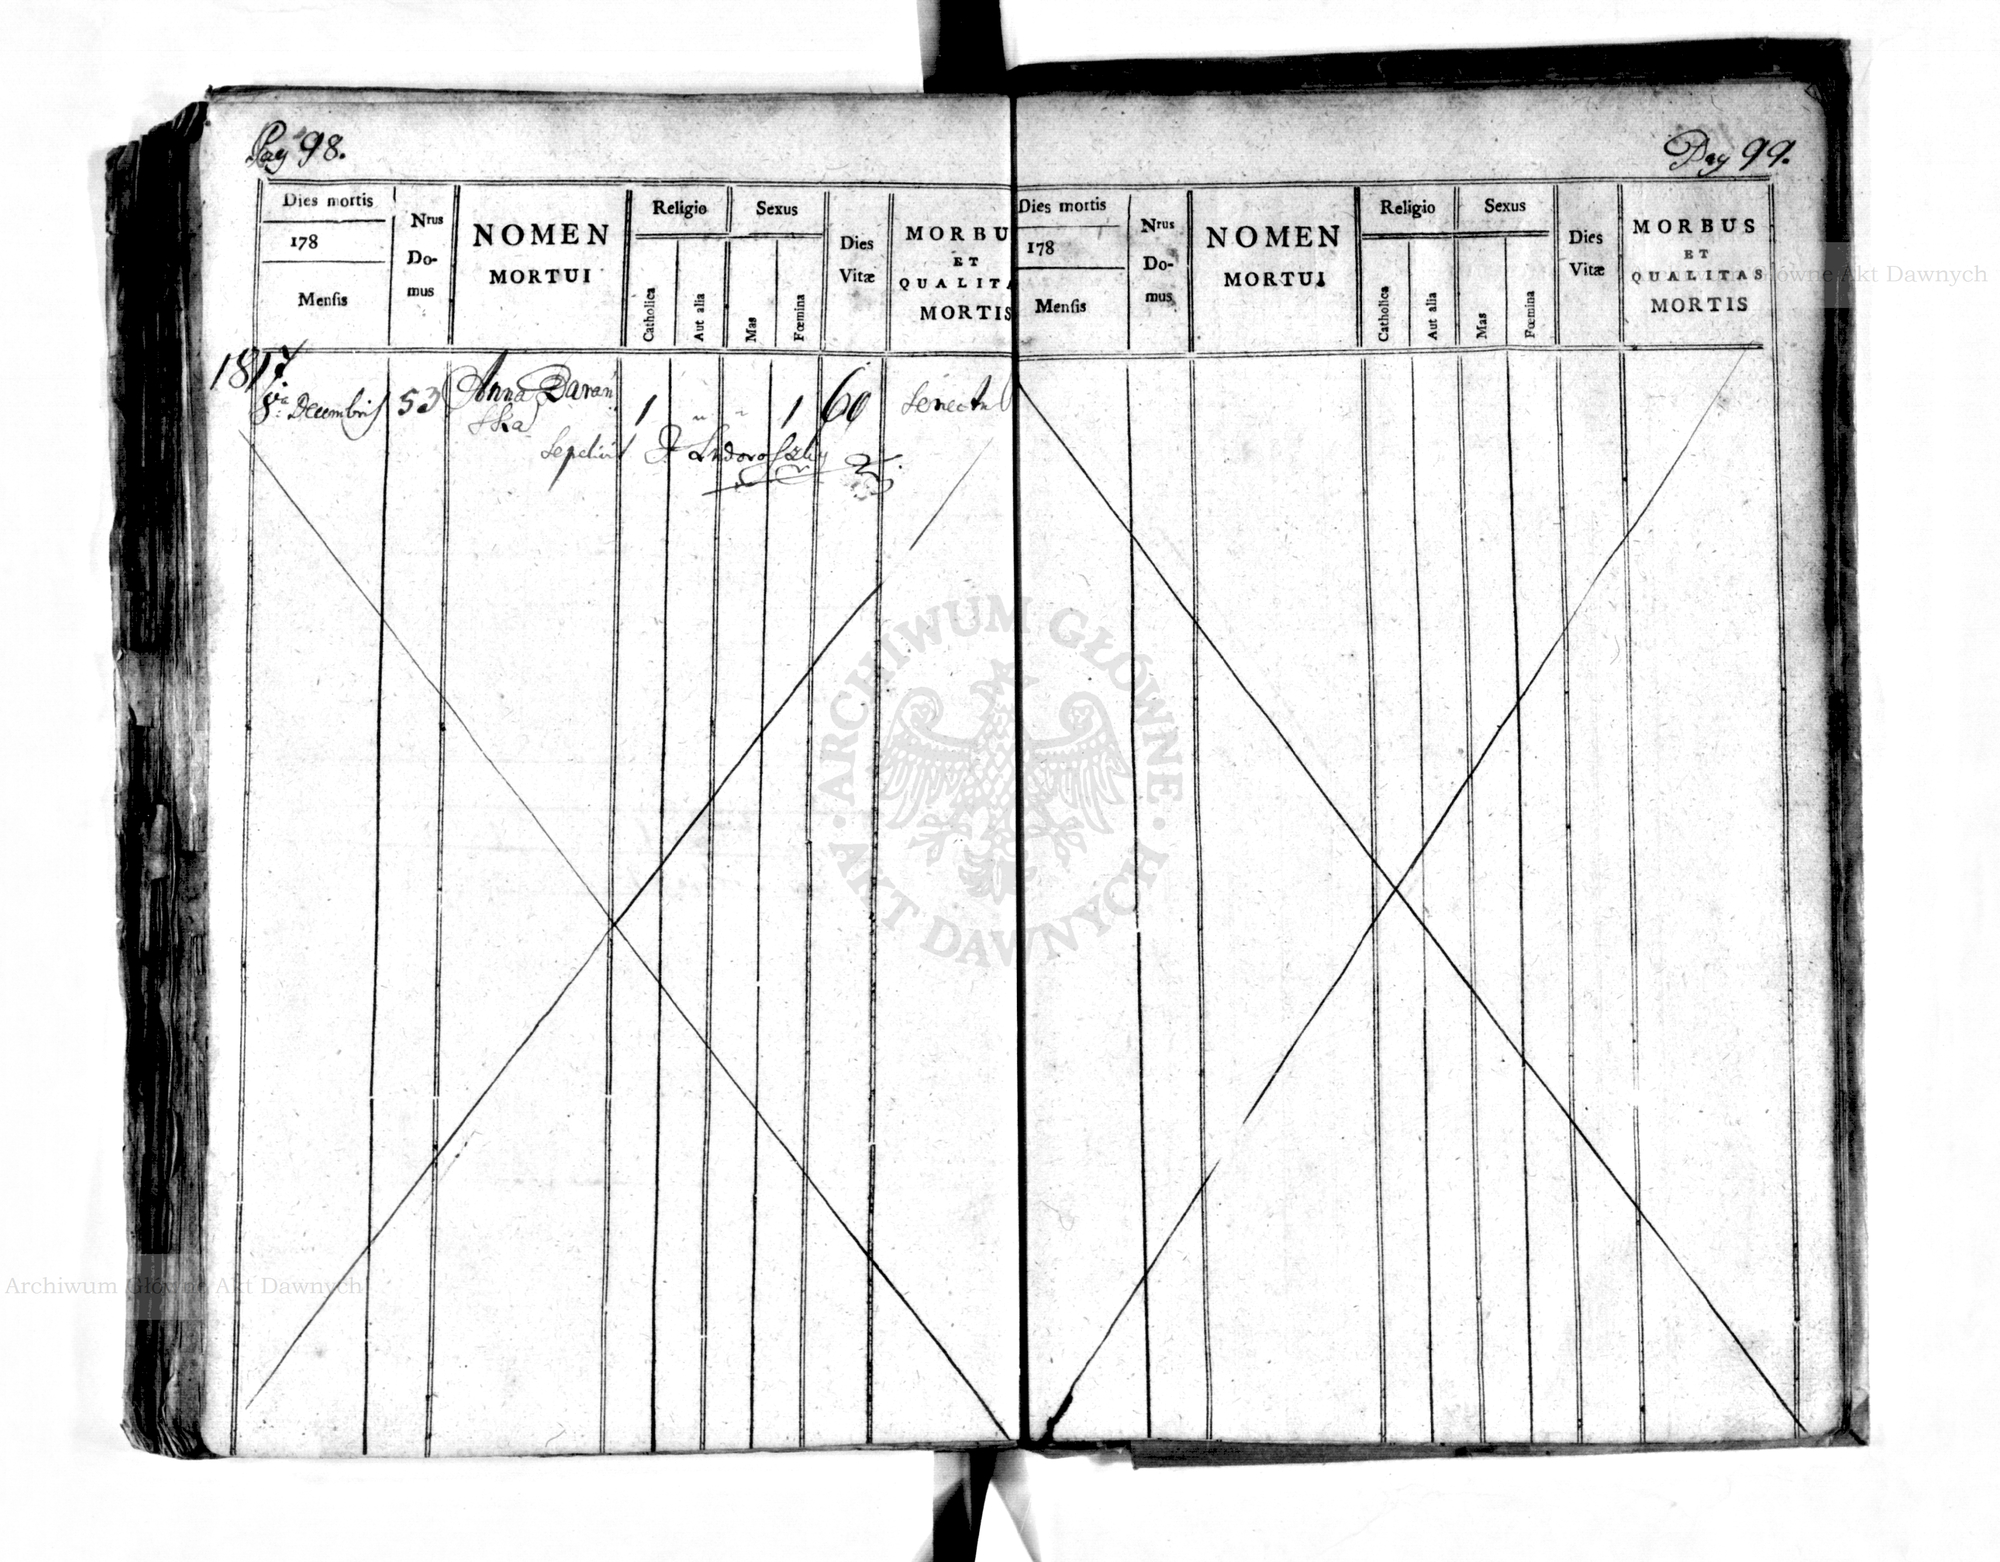 Pag 98.
Dies mortis
178
Mensis
Nrus
Do-
mus
NOMEN
MORTUI
Religio
Catholica
Aut alia
Sexus
Mas
Fœmina
Dies
Vitæ
MORBU
ET
QUALITA
MORTIS
1817
Decembris 53 Anna Baran 1 " " 1 60 Senectus
ska
Sepelivit
Pag 99.
Dies mortis
178
Mensis
Nrus
Do-
mus
NOMEN
MORTUI
Religio
Catholica
Aut alia
Sexus
Mas
Fœmina
Dies
Vitæ
MORBUS
ET
QUALITAS
MORTIS
ARCHIWUM GŁÓWNE
AKT DAWNYCH
Główne Akt Dawnych
Archiwum Główne Akt Dawnych